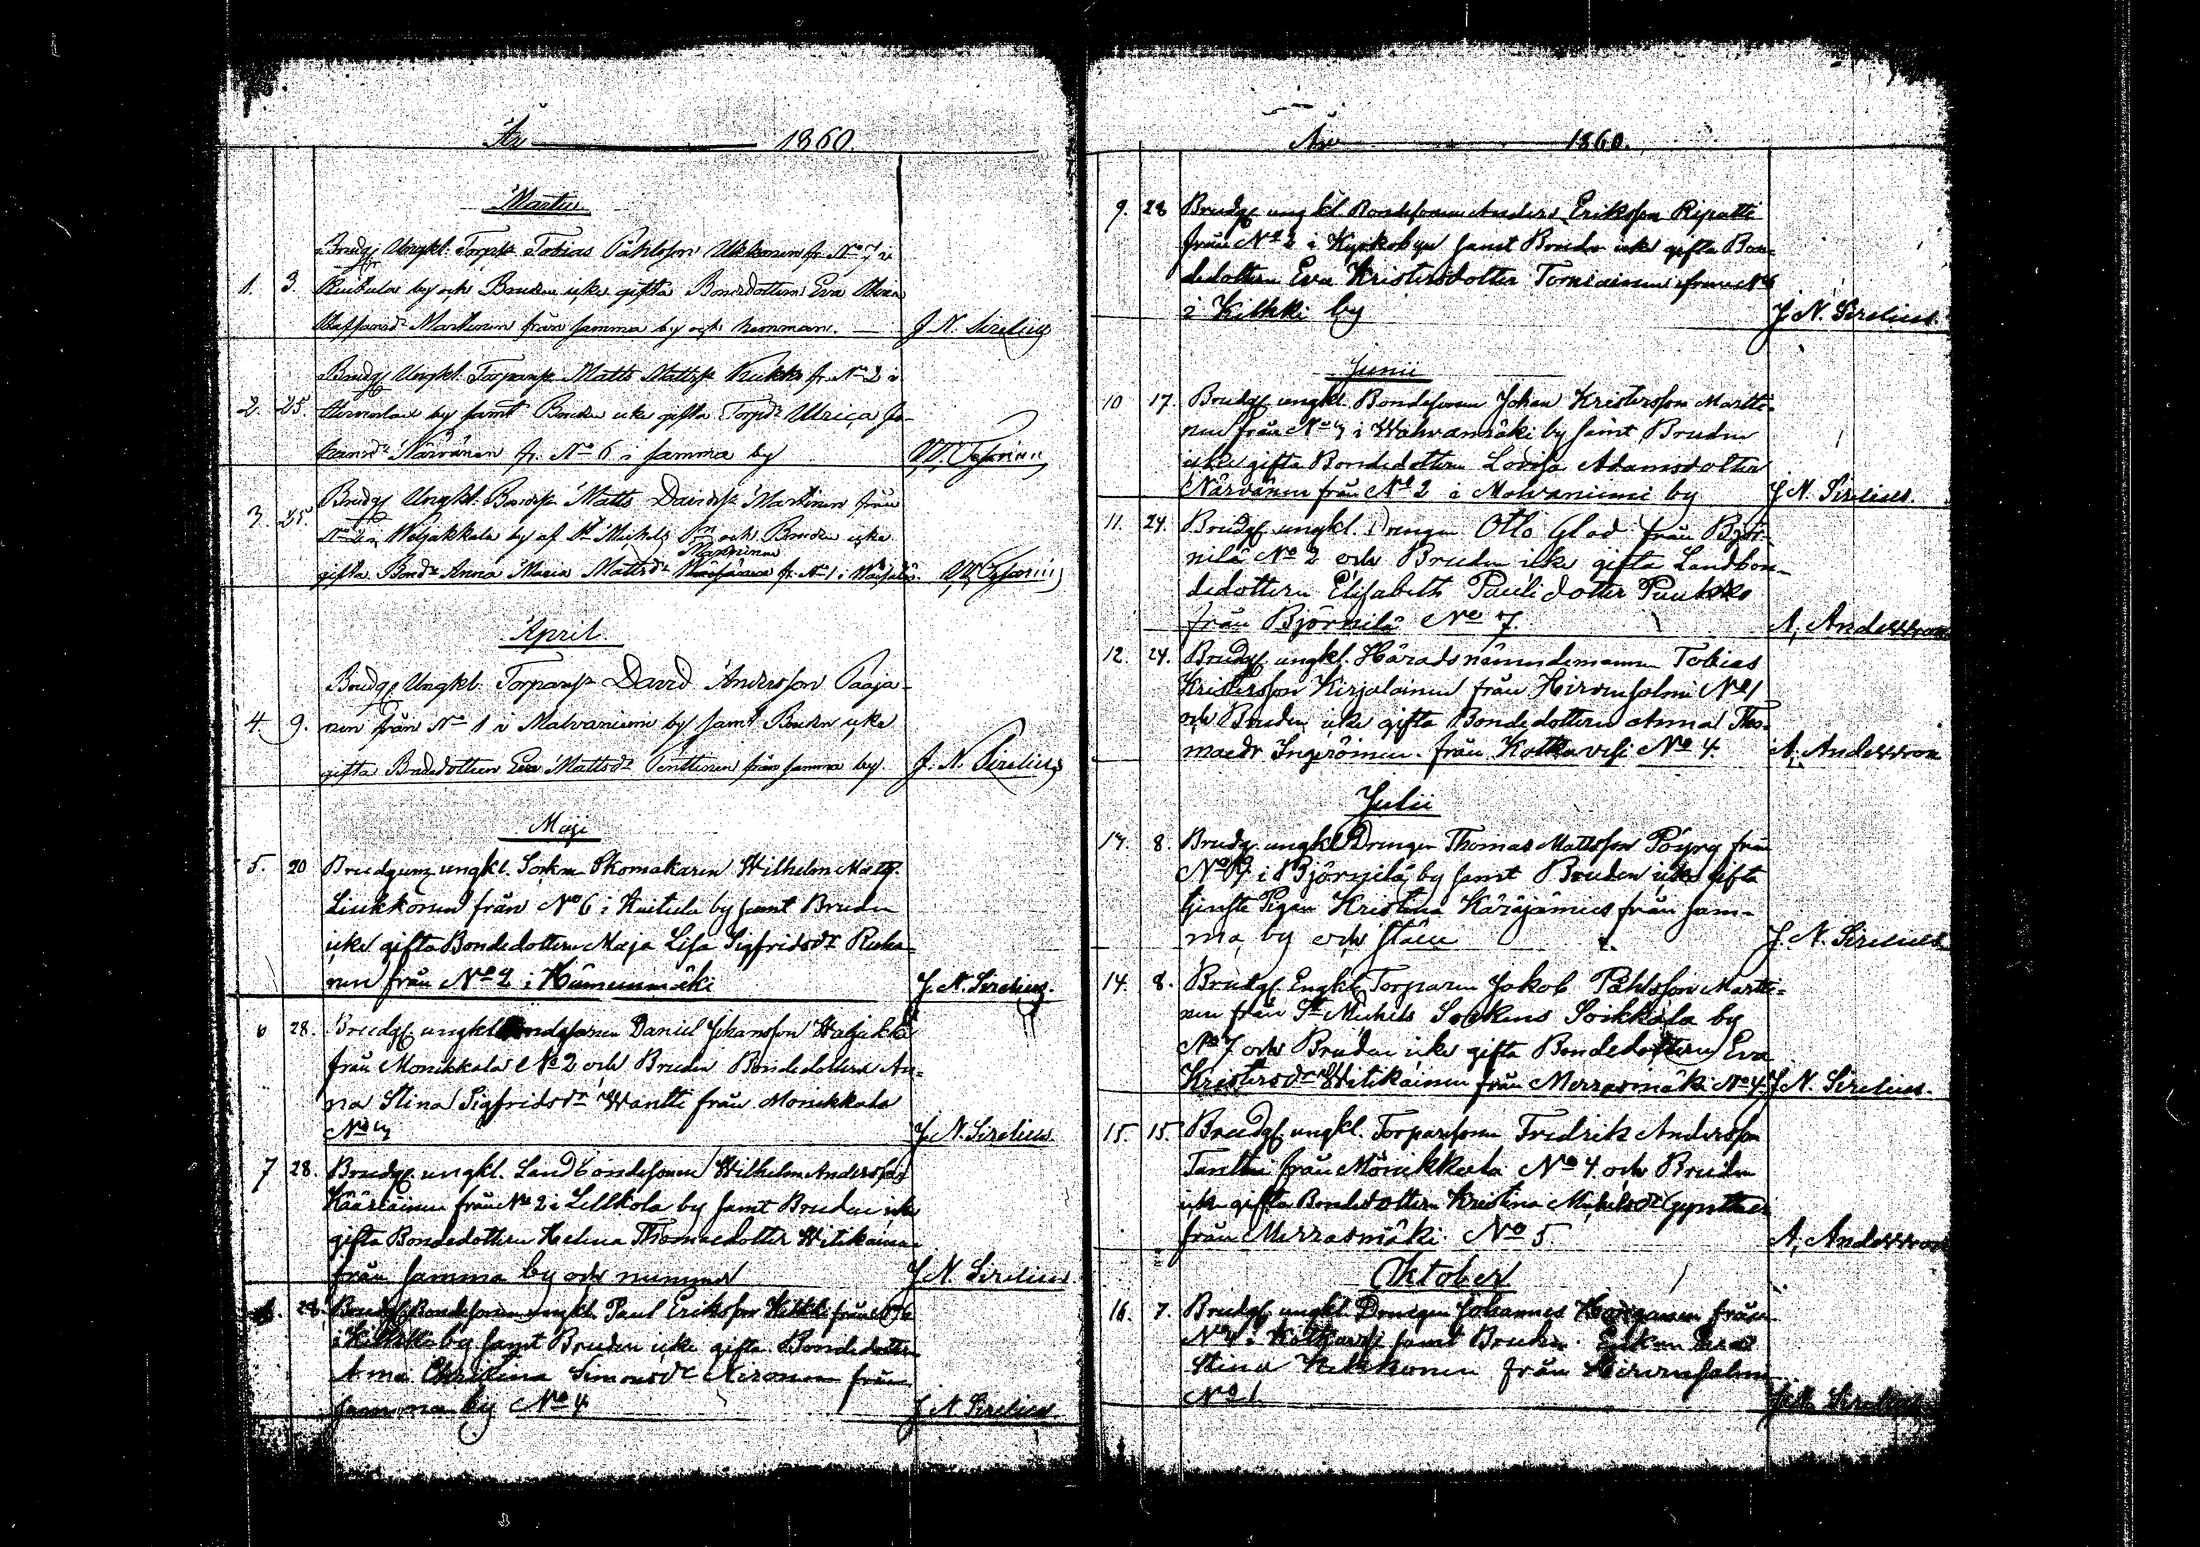 År 1860.
Martii
Brudg Ungkl. Torpss Tobias Påhlsson Ukkonen fr. No 7 i
1. 3. by och Bruden icke gifta Bondedottern Eva
Staffansdr Martinen från samma by och hemman. — J. N. Sirelius
Brudg Ungkl. Torparss Matts Mattss Kukko fr. No 2 i
2. 25. by samt Bruden icke gifta Torpdr Ulrica Jo-
hansdr Närvänen fr. No 6 i samma by
Brudg Ungkl. Bondss Matts Davidss Martinen från
3. 25. No by af St Michels Sn och Bruden icke
Manninen
gifta Bondr Anna Maria Mattsdr fr. No 1 i
April
Brudg Ungkl. Torparss David Andersson Paaja-
4. 9. nen från No 1 i Malvaniemi by samt Bruden icke
gifta Bondedottern Eva Mattsdr Penttinen från samma by. J. N. Sirelius
Maji
5. 20 Brudgum ungkl. Sockne Skomakaren Wilhelm Matts.
Liukkonen från No 6 i by samt Bruden
icke gifta Bondedottern Maja Lisa Sigfridsdr
nen från No 2 i Hämeenmäki J. N. Sirelius.
6 28. Brudg. ungkl Bondesonen Daniel Johansson
från Monikkala No 2 och Bruden Bondedottern An-
na Stina Sigfridsdr Wantti från Monikkala
No J. N. Sirelius.
7 28. Brudg. ungkl. Landbondesonen Wilhelm Andersson
Kääriäinen från No 2 i Lelkkola by samt Bruden icke
gifta Bondedottern Helena Thomaedotter Witikaine
från samma by och nummer J. N. Sirelius
8. 28. Brudg. Bondesonen ungkl. Paul Eriksson Kilkki från No 6
i Kilkki by samt Bruden icke gifta Bondedotter
Anna Christina Simonsdr från
samma by No 4 J. N. Sirelius.
År 1860.
9. 28 Brudg ungkl. Bondesonen Anders Eriksson Ripatti
från No 2 i Kyrkobyn samt Bruden icke gifta Bon-
dedottern Eva Kristersdotter Torniainen från No 6
i Kilkki by J. N. Sirelius.
Junii
10 17. Brudg. ungkl. Bondesonen Johan Kristersson Martti-
nen från No 7 i Wahvanmäki by samt Bruden
icke gifta Bondedottern Lovisa Adamsdotter
Närvänen från No 2 i Malvaniemi by J. N. Sirelius.
11. 24. Brudg. ungkl. Drengen Otto Glad från Björ-
nilä No 2 och Bruden icke gifta Landbon-
dedottern Elisabeth Paulidotter Puukko
från Björnilä No 7. A. Andersson
12. 24. Brudg. ungkl. Häradsnämndemannen Tobias
Kristersson Kirjalainen från Hirvensalmi No 1
och Bruden icke gifta Bondedottern Anna Tho-
maedr Ingeröinen från Kotkavesi No 4. A. Andersson
Julii
8. Brudg. ungkl Drengen Thomas Mattsson Pöyry från
No i Björnilä by samt Bruden icke gifta
tjenste Pigan Kristina Käräjämies från sam-
ma by och ställe J. N. Sirelius
14. 8. Brudg. Ungkl Torparen Jakob Påhlsson Marti-
nen från St Michels Sockens Soikkala by
No 7 och Bruden icke gifta Bondedottern Eva
Kristersdr Witikainen från Merrasmäki No 4. J. N. Sirelius.
15. 15. Brudg. ungkl. Torparesonen Fredrik Andersson
Tanttu från Monikkala No 4. och Bruden
icke gifta Bondedottern Kristina Mickelsdr Gynther
från Merrasmäki No 5 A. Andersson
Oktober
16. 7. Brudg. ungkl. Drengen Johannes från
No 4 i Kotkavesi samt Bruden Enkan
Stina Kekkonen från Hirvensalmi
No 1. J. N. Sirelius